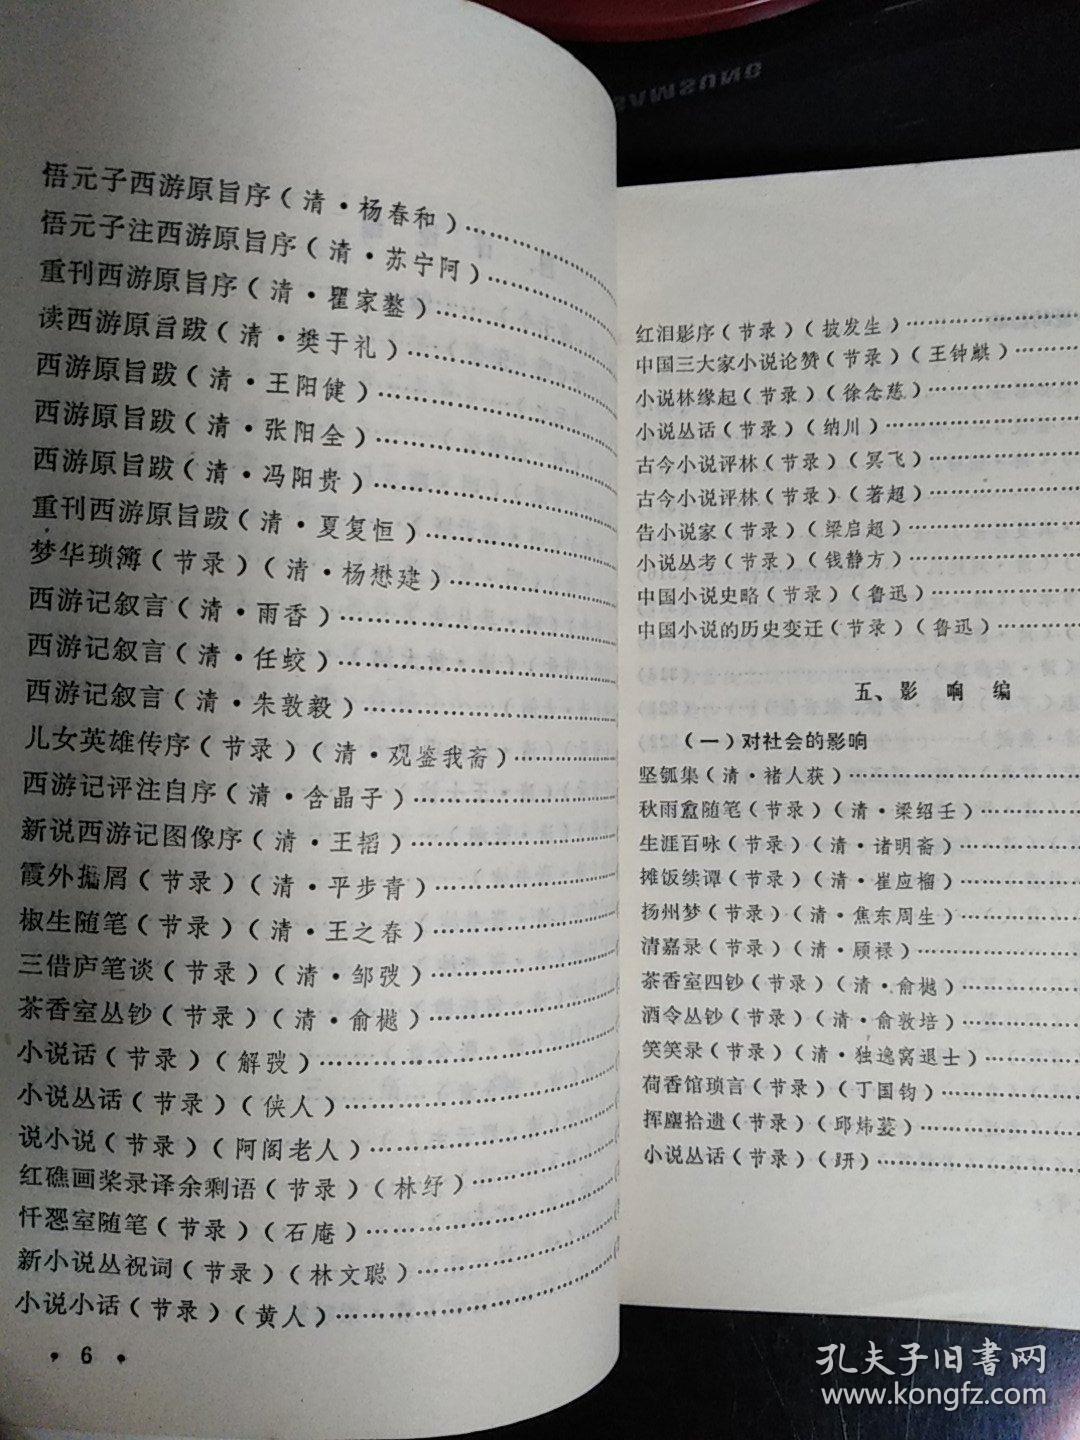 悟元子西游原旨序(清·杨春和)………………
悟元子注西游原旨序(清·苏宁阿)………………
重刊西游原旨序(清·瞿家鏊)………………
读西游原旨跋(清·樊于礼)………………
西游原旨跋(清·王阳健)………………
西游原旨跋(清·张阳全)………………
西游原旨跋(清·冯阳贵)………………
重刊西游原旨跋(清·夏复恒)………………
梦华琐簿(节录)(清·杨懋建)………………
西游记叙言(清·雨香)………………
西游记叙言(清·任蛟)………………
西游记叙言(清·朱敦毅)………………
儿女英雄传序(节录)(清·观鉴我斋)………………
西游记评注自序(清·含晶子)………………
新说西游记图像序(清·王韬)………………
霞外攟屑(节录)(清·平步青)………………
椒生随笔(节录)(清·王之春)………………
三借庐笔谈(节录)(清·邹弢)………………
茶香室丛钞(节录)(清·俞樾)………………
小说话(节录)(解弢)………………
小说丛话(节录)(侠人)………………
说小说(节录)(阿阁老人)………………
红礁画桨录译余剩语(节录)(林纾)………………
忏慁室随笔(节录)(石庵)………………
新小说丛祝词(节录)(林文聪)………………
小说小话(节录)(黄人)………………
·6·
红泪影序(节录)(披发生)………………
中国三大家小说论赞(节录)(王钟麒)………………
小说林缘起(节录)(徐念慈)………………
小说丛话(节录)(纳川)………………
古今小说评林(节录)(冥飞)………………
古今小说评林(节录)(著超)………………
告小说家(节录)(梁启超)………………
小说丛考(节录)(钱静方)………………
中国小说史略(节录)(鲁迅)………………
中国小说的历史变迁(节录)(鲁迅)………………
五、影响编
(一)对社会的影响
坚瓠集(清·褚人获)………………
秋雨盦随笔(节录)(清·梁绍壬)………………
生涯百咏(节录)(清·诸明斋)………………
摊饭续谭(节录)(清·崔应榴)………………
扬州梦(节录)(清·焦东周生)………………
清嘉录(节录)(清·顾禄)………………
茶香室四钞(节录)(清·俞樾)………………
酒令丛钞(节录)(清·俞敦培)………………
笑笑录(节录)(清·独逸窝退士)………………
荷香馆琐言(节录)(丁国钧)………………
挥麈拾遗(节录)(邱炜萲)………………
小说丛话(节录)(趼)………………
孔夫子旧书网
www.kongfz.com